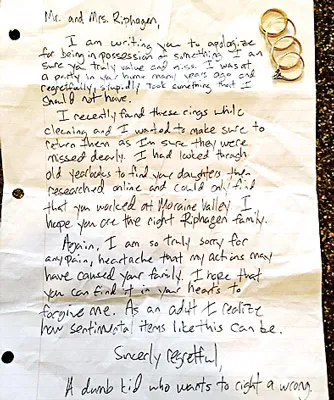 Mr. and Mrs. Riphagen,
I am writing you to apologize
for being in possession of something I am
sure you truly value and miss. I was at
a party in your home many years ago and
regretfully, stupidly took something that I
should not have.
I recently found these rings while
cleaning and I wanted to make sure to
return them as Im sure they were
missed dearly. I had looked through
old yearbooks to find your daughters then
researched online and could only find
that you worked at Moraine Valley. I
hope you are the right Riphagen family.
Again, I am so truly sorry for
any pain, heartache that my actions may
have caused your family. I hope that
you can find it in your hearts to
forgive me. As an adult I realize
how sentimental items like this can be.
Sincerly regretful,
A dumb kid who wants to right a wrong.